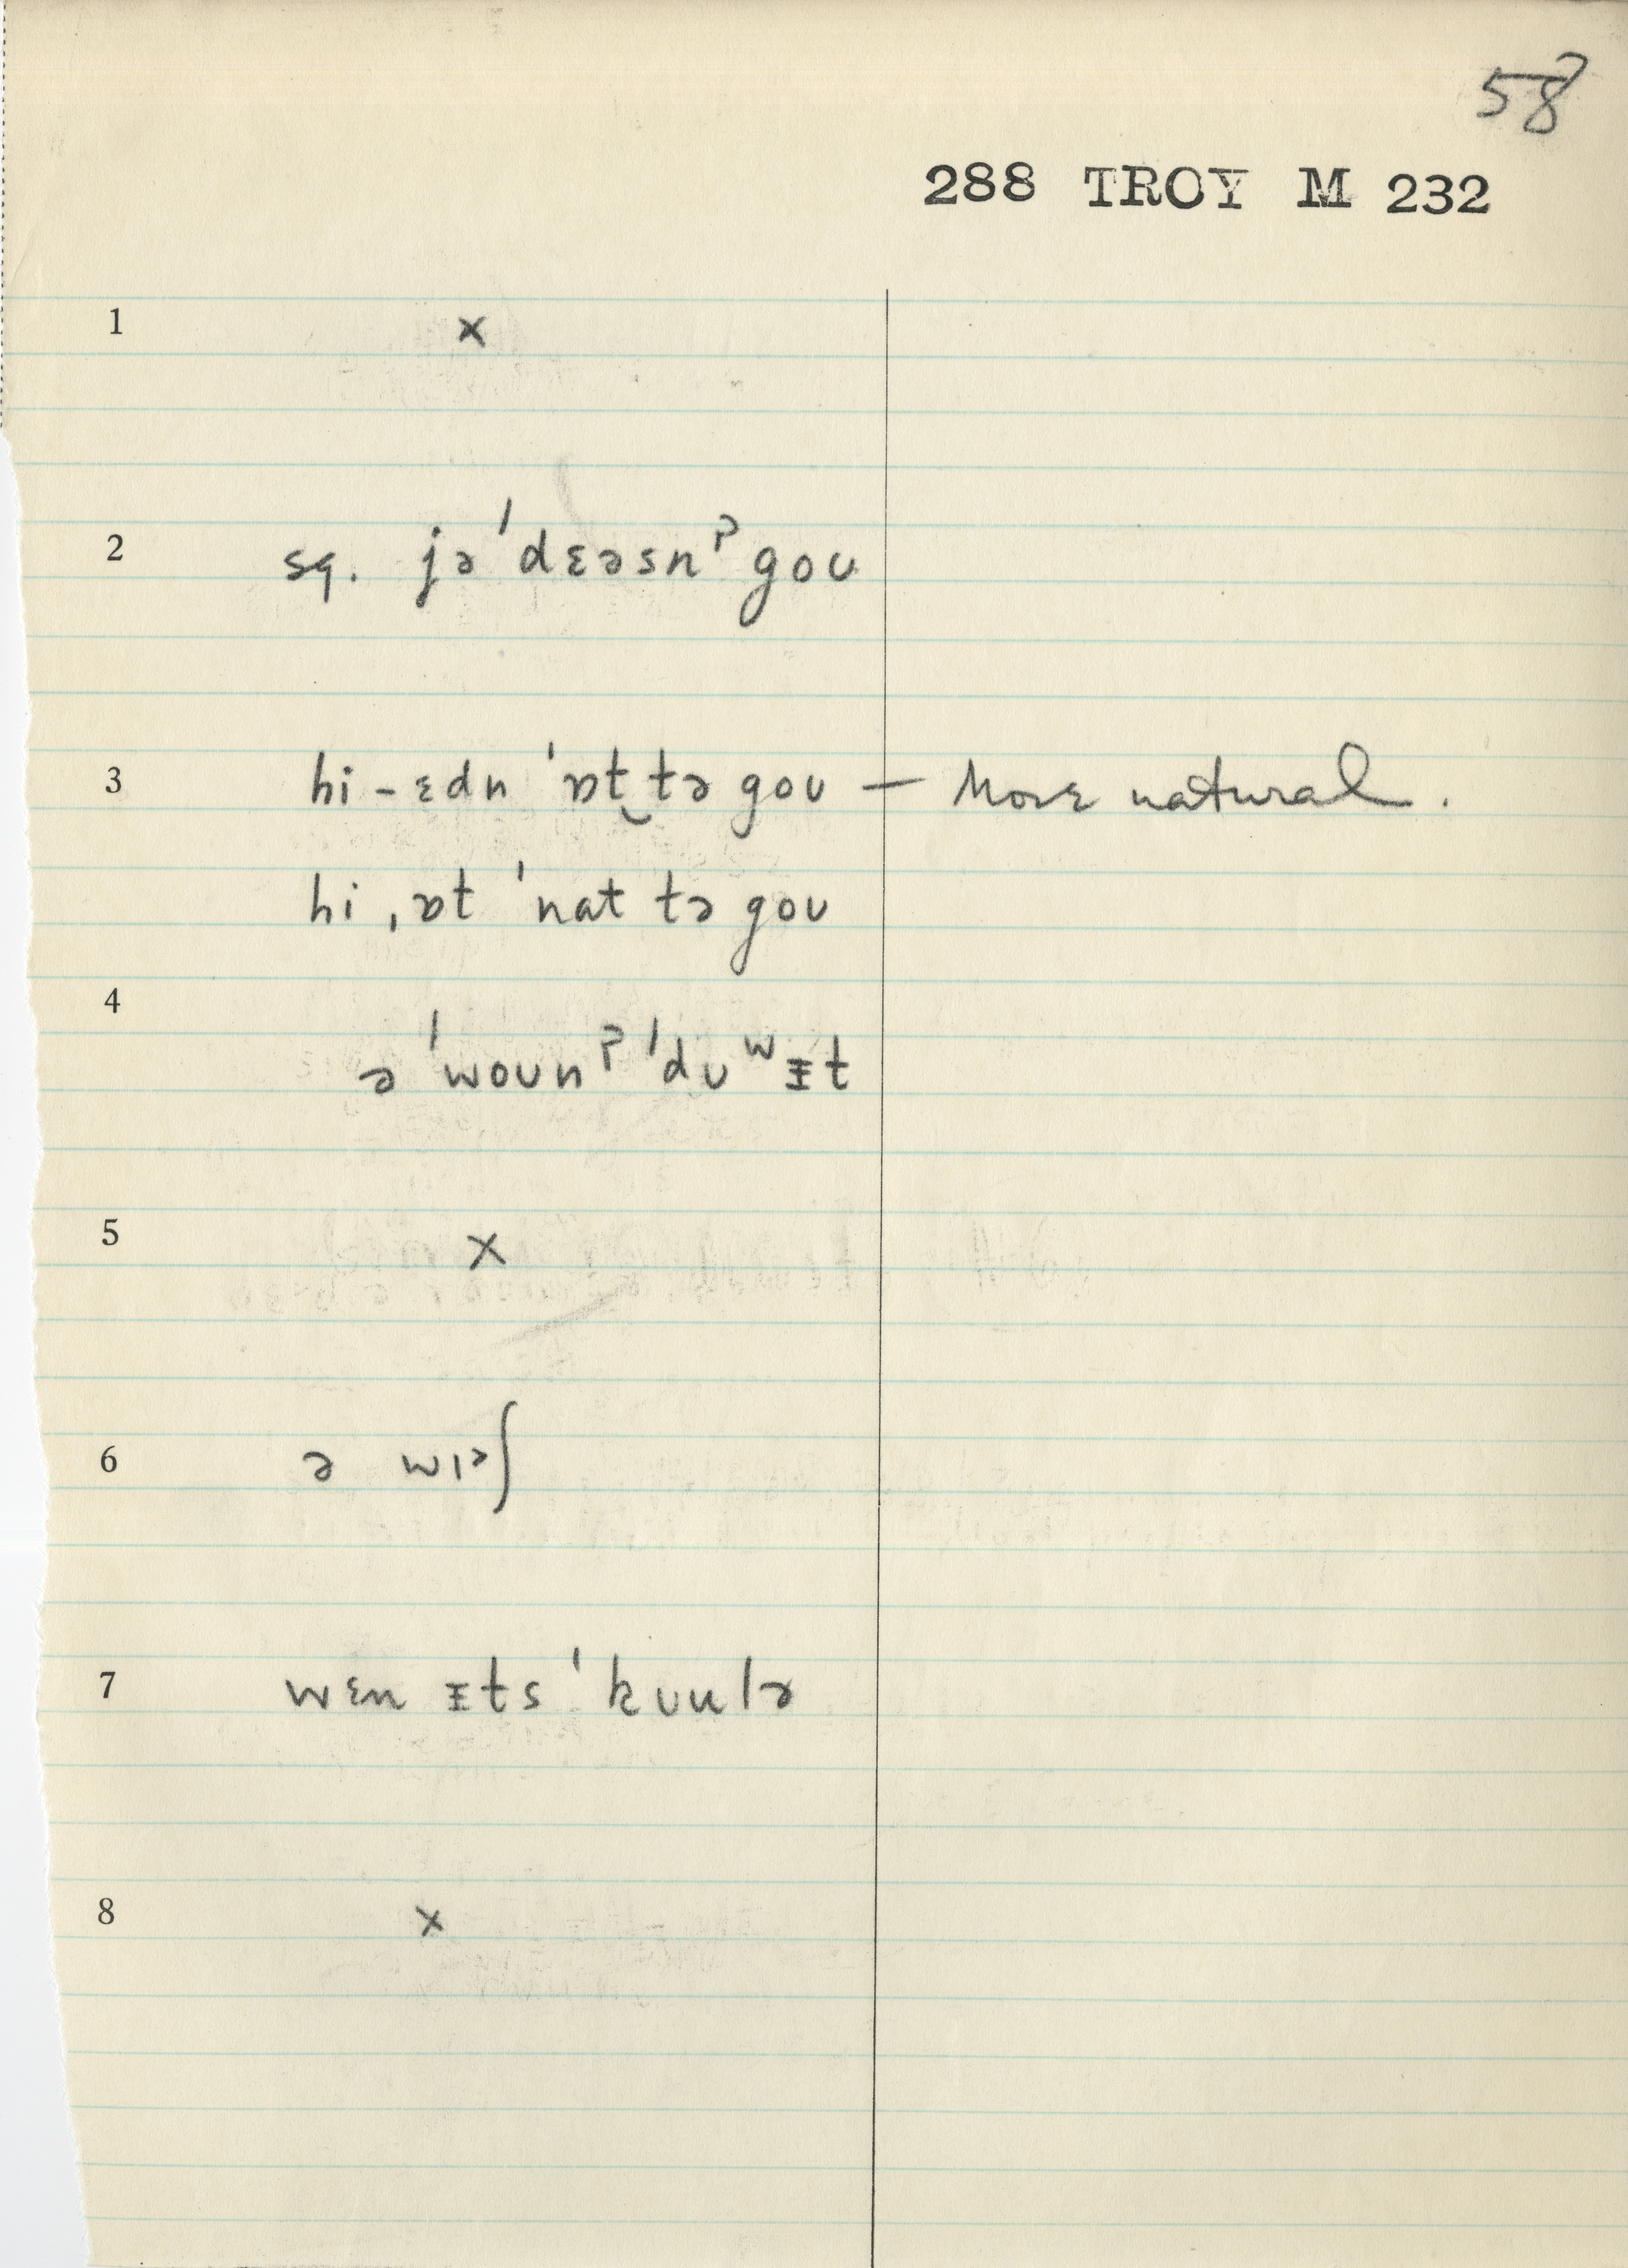 58
288 TROY M 232
1 x
2 sq. jə ˈdɛəsnˀ goʊ
3 hi - ɛdn ˈɒt‿tə goʊ — More natural.
hi ˌɒt ˈnat tə goʊ
4 ə ˈwoʊnˀ ˈdʊʷᵻt
5 x
6 ə wɪəʃ
7 wɛn ᵻts ˈkʊulə
8 x